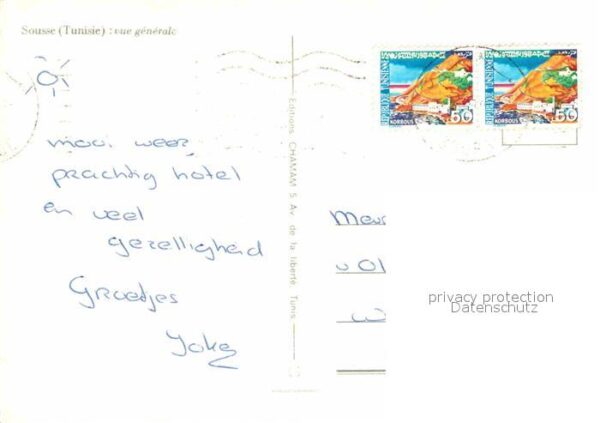 Sousse (Tunisie) : vue générale
mooi weer
prachtig hotel
en veel
gezelligheid
Groetjes
Joke
Editions CHAMAM 5 Av. de la liberté Tunis
REPUBLIQUE TUNISIENNE
KORBOUS
50
REPUBLIQUE TUNISIENNE
KORBOUS
50
privacy protection
Datenschutz